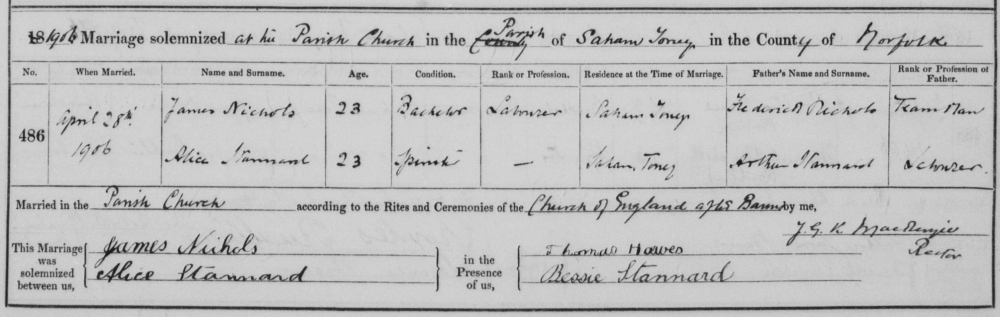 1906 Marriage solemnized at the Parish Church in the Parish of Saham Toney in the County of Norfolk
No. When Married. Name and Surname. Age. Condition. Rank or Profession. Residence at the Time of Marriage. Father's Name and Surname. Rank or Profession of Father.
486 April 28th 1906 James Nichols 23 Bachelor Labourer Saham Toney Frederick Nichols Team Man
Alice Stannard 23 Spinster — Saham Toney Arthur Stannard Labourer.
Married in the Parish Church according to the Rites and Ceremonies of the Church of England after Banns by me,
J. G. K. MacKenzie
Rector
This Marriage was solemnized between us, James Nichols in the Presence of us, Thomas Hawes
Alice Stannard Bessie Stannard